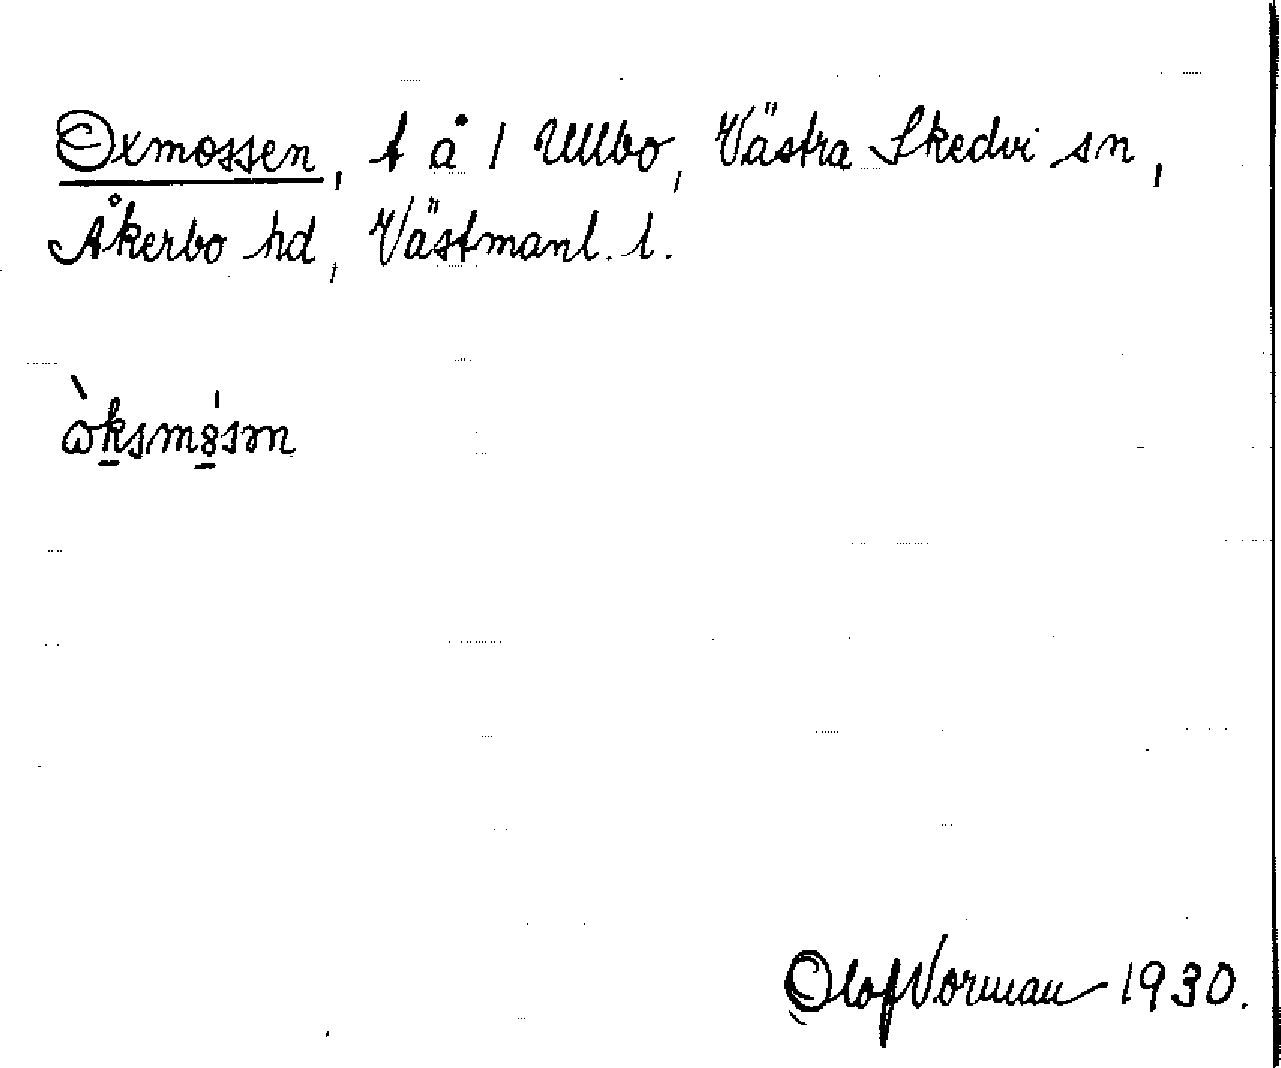 Oxmossen, t å 1 Ullbo, Västra Skedvi sn,
Åkerbo hd, Västmanl. l.
Olof Norman 1930.